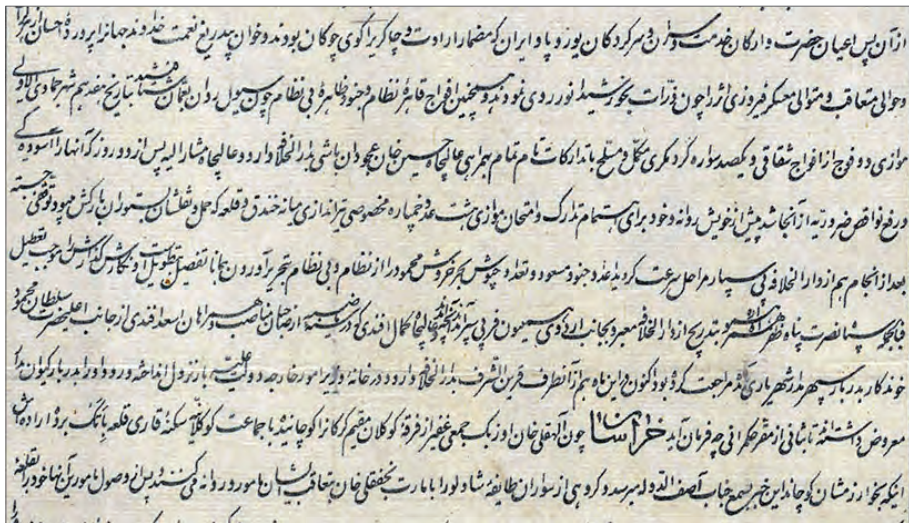 از آن پس اعیان حضرت و ارکان خدمت و سران و سرکردکان یوروپا و ایران که مضمار ارادت و چاکریرا گوی چوکان بودند و خوان بیدریغ نعمت خداوند جهانرا پرورده احسان
و حوالی متعاقب و متوالی معسکر فیروزی اثر را چون ذرات بخورشید انور روی نمودند و همچنین افواج قاهره نظام و جنود ظاهره بی نظام چون سیول روان بتاریخ هفدهم شهر جمادی الاولی
موازی دو فوج از افواج شقاقی و یکصد سواره کرد مکری مکمل و مسلح باتدارکات تام تمام بهمراهی عالیجاه حسین خان آجودان باشی بدار الخلافه وارد و عالیجاه مشارالیه پس از دو روز که آنها را آسوده کی
و رفع نواقص ضروریه از آنجا شد پیش از خویش روانه و خود برای اهتمام تدارک و امتحان موازی هشت عدد خمپاره مخصوصی تیراندازی میانه خندق و قلعه که حمل و نقلشان بستوران بارکش نمود توقفی جسته
بعد از انجام هم از دار الخلافه فی سپار مراحل سرعت کردید عدد جنود مسعود و تعداد جیوش بحر خروش محمود را از نظام و بی نظام بتحریر آوردن بجا با تفصیل بتطویل او نگارش گذارش را موجب تعطیل
سپاه نصرت پناه ظفر همراه بتدریج از دار الخلافه معبر و بجانب اردوی میمون قرین عالیجاه کمال افندی که در و همراهان اسعد افندی از جانب اعلیحضرت سلطان محمود
خوندکار بدربار سپهر مدار شهریاری آمده مراجعت کرده بود کنون در این ماه هم از آنطرف قرین الشرف بدار الخلافه وارد و در خانه وزیر امور خارجه دولت علیه بار نزول انداخته و ورود او را بدربار کیوان
معروض داشته تا ثانی از مقر حکمرانی چه فرمان آید خراسان چون آلهقلی خان اوزبک جمعی غفیر از فرقه کوکلان مقیم کرکانرا کوچانیده با جماعت کوکلان سکنه قاری قلعه بآتک برده اراده اش
اینکه بخوارزمشان کوچاند این خبر بسمع جناب آصف الدوله میرسد و کروهی از سواران طایفه شادلو را بامارت نجفقلی خان بتعاقب ایشان مامور و روانه می کنند پس از وصول مامورین آنها خود را بقلعه